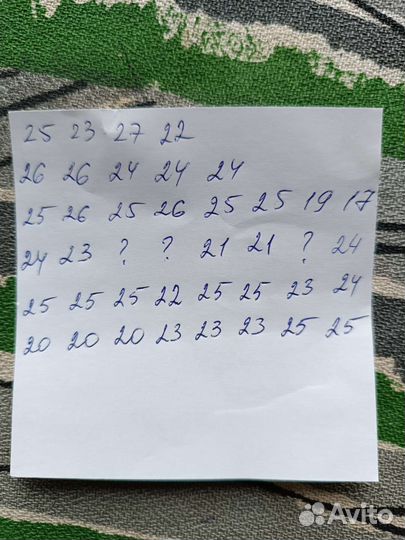 25 23 27 22
26 26 24 24 24
25 26 25 26 25 25 19 17
24 23 ? ? 21 21 ? 24
25 25 25 22 25 25 23 24
20 20 20 23 23 23 25 25
Avito